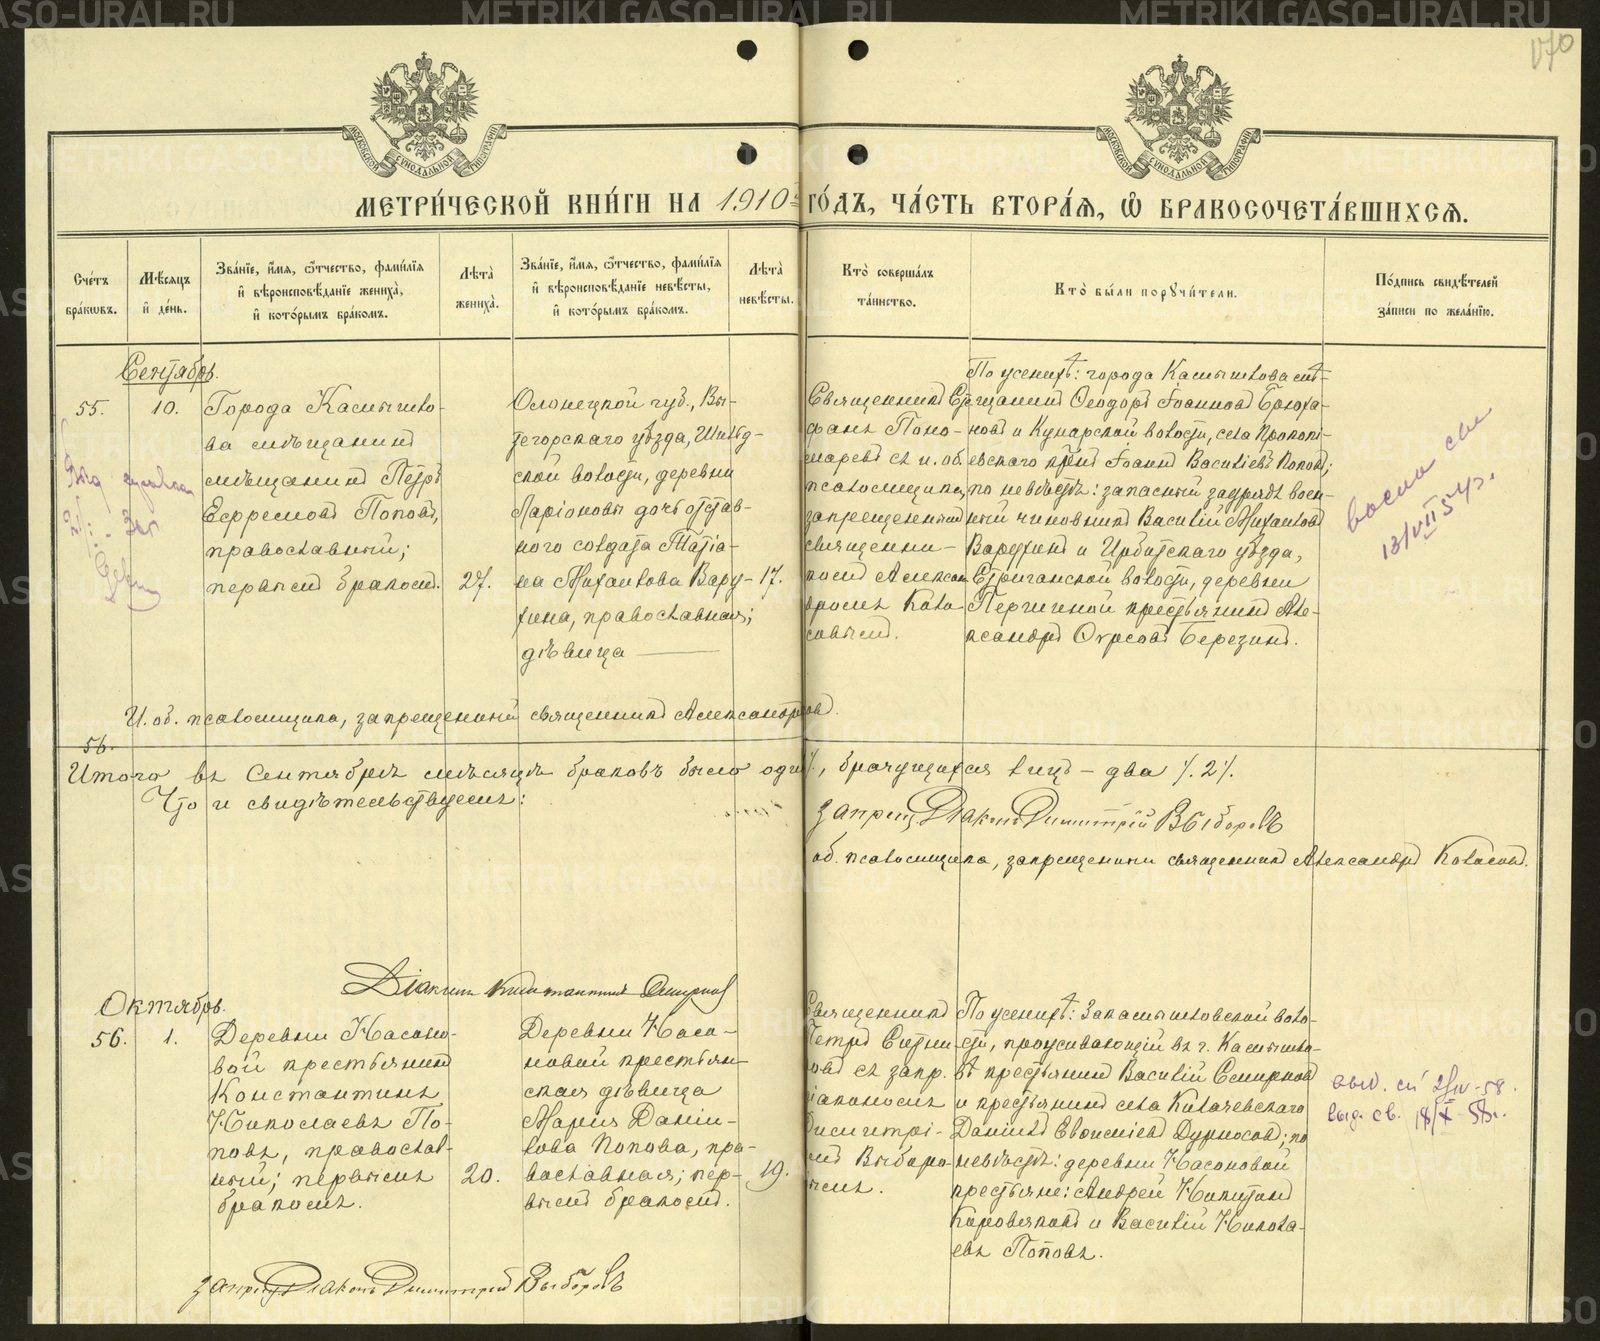 МЕТРИ́ЧЕСКОЙ КНИ́ГИ НА 1910 ГО́ДЪ, ЧА́СТЬ ВТОРА́Я, Ѽ БРАКОСОЧЕТА́ВШИХСЯ.
Сче́тъ бра́кωвъ.
Мѣ́сяцъ и҆ де́нь.
Зва́нїе, и҆́мя, ѻ҆́тчество, фами́лїя и҆ вѣроисповѣ́данїе жениха̀, и҆ кото́рымъ бра́комъ.
Лѣ́та жениха̀.
Зва́нїе, и҆́мя, ѻ҆́тчество, фами́лїя и҆ вѣроисповѣ́данїе невѣ́сты, и҆ кото́рымъ бра́комъ.
Лѣ́та невѣ́сты.
Кто̀ соверша́лъ та́инство.
Кто̀ бы́ли порꙋчи́тели.
По́дпись свидѣ́телей за́писи по жела́нїю.
Сентябрь.
55.
10.
Города Камышло-
ва мѣщанинъ
мѣщанинъ Петръ
Ефремовъ Поповъ,
православный;
первымъ бракомъ.
27.
Олонецкой губ., Вы-
тегорскаго уѣзда,
ской волости, деревни
Ларіоновы дочь отстав-
ного солдата Татіа-
на Михаилова Вару-
хина, православная;
дѣвица
17.
Священникъ
Поно-
маревъ съ и. об.
псаломщика,
запрещеннымъ
священни-
комъ Алексан-
дромъ Коло-
совымъ.
По женихѣ: города Камышлова мѣ-
щанинъ Ѳеодоръ Іоанновъ Брюха-
новъ и Кунарской волости, села Прокопі-
евскаго крест. Іоаннъ Василіевъ Поповъ;
по невѣстѣ: запасный заурядъ воен-
ный чиновникъ Василій Михаиловъ
Варухинъ и Ирбитскаго уѣзда,
Стриганской волости, деревни
крестьянинъ Але-
ксандръ Березинъ.
13/VII 54 г.
И. об. псаломщика, запрещенный священникъ Александръ
56.
Итого въ Сентябрѣ мѣсяцѣ браковъ было одинъ, брачущихся лицъ - два /.2/.
Что и свидѣтельствуемъ:
запрещ. Діаконъ Димитрій Выборовъ
об. псаломщика, запрещенный священникъ Александръ Колосовъ.
Діаконъ Константинъ Смирновъ
Октябрь.
56.
1.
Деревни Насоно-
вой крестьянинъ
Константинъ
Николаевъ По-
повъ, православ-
ный; первымъ
бракомъ.
20.
Деревни Насо-
новой крестьян-
ская дѣвица
Марія Даніи-
лова Попова, пра-
вославная; пер-
вымъ бракомъ.
19.
Священникъ
Петръ Ситни-
ковъ съ запр.
діакономъ
Димитрі-
емъ Выборо-
вымъ.
По женихѣ: Закамышловской воло-
сти, проживающій въ г. Камышло-
вѣ крестьянинъ Василій Смирновъ
и крестьянинъ села Калачевскаго
Даніилъ Евѳиміевъ Дурносовъ; по
невѣстѣ: деревни Насоновой
крестьяне: Андрей Никитинъ
Коровяковъ и Василій Никола-
евъ Поповъ.
выд. св. 18/X-58г.
запрещ. Діаконъ Димитрій Выборовъ
METRIKI.GASO-URAL.RU